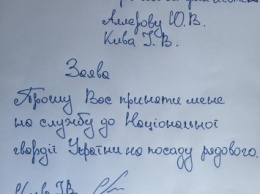 Аллерову Ю.В.
Кива І.В.
Заява
Прошу Вас прийняти мене
на службу до Національної
гвардії України на посаду рядового.
Кива І.В.